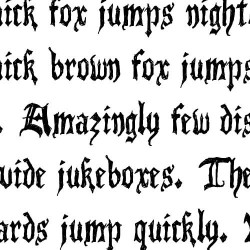 uick fox jumps night
uick brown fox jumps
. Amazingly few dis
vide jukeboxes. The
ards jump quickly.